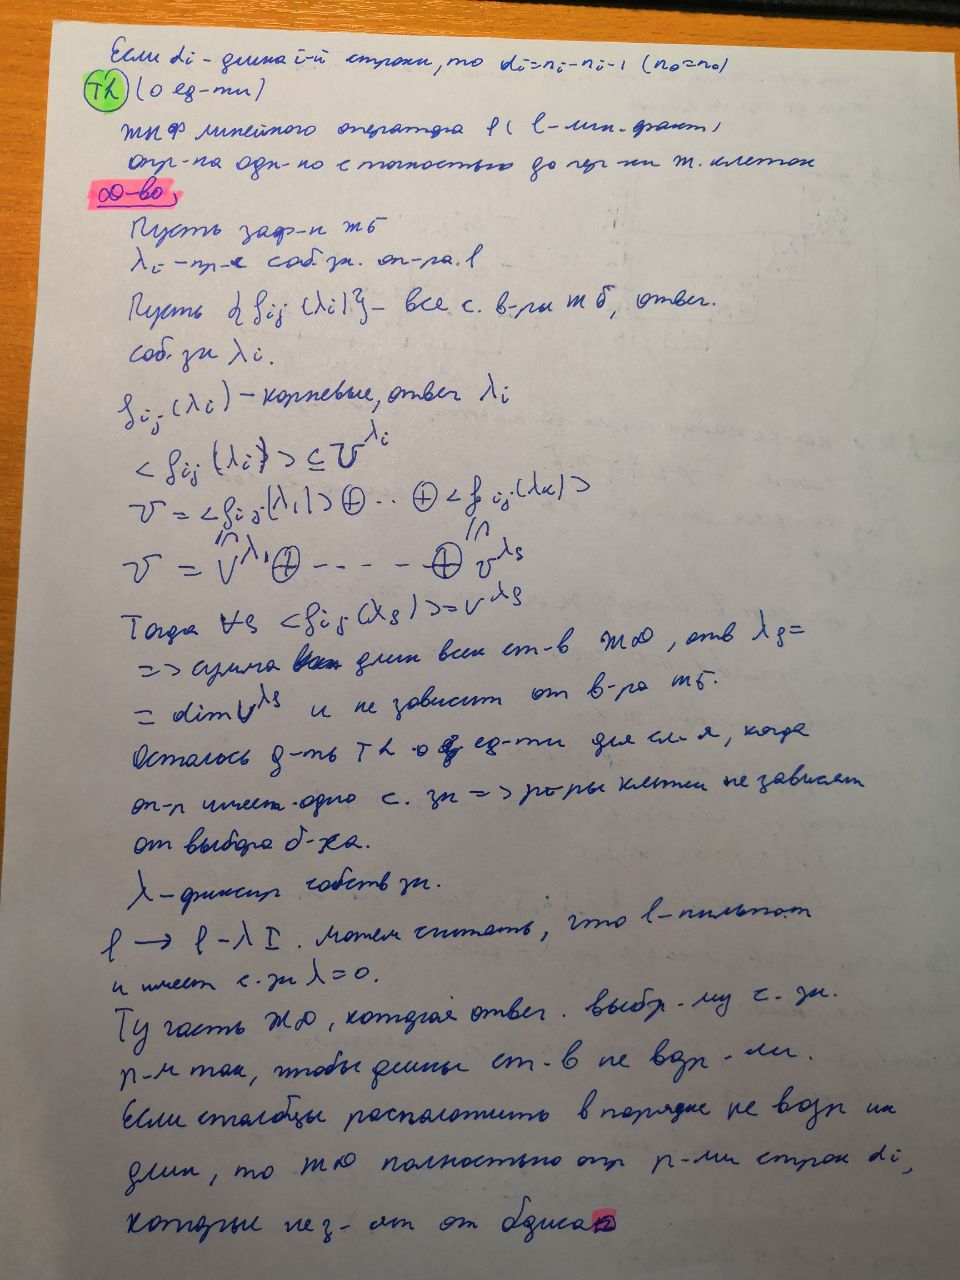 Если di - длина i-й строки, то di=ni-ni-1 (n0=n0)
Th (о ед-ти)
ЖНФ линейного оператора f (f-лин. факт)
опр-на одн-но с точностью до пер-ки ж. клеток
Д-во,
Пусть заф-н ЖБ
λi - пр-е соб. зн. оп-ра f
Пусть {fij(λi)} - все с. в-ры ЖБ, отвеч.
соб. зн λi.
fij(λi) - корневые, отвеч λi
<fij(λi)> ⊆ V^λi
V = <fij(λ1)> ⊕ .. ⊕ <fij(λk)>
V = V^λ1 ⊕ - - - - - ⊕ V^λs
Тогда ∀s <fij(λs)> = V^λs
=> сумма длин всех ст-в ЖД, отв λs =
= dim V^λs и не зависит от в-ра ЖБ.
Осталось д-ть Th о ед-ти для сл-я, когда
оп-р имеет одно с. зн => р-ры клетки не зависят
от выбора б-са.
λ - фиксир собств зн.
f → f - λI. Можем считать, что f - нильпот
и имеет с. зн λ=0.
Ту часть ЖД, которая отвеч. выбр-му с. зн.
р-м так, чтобы длины ст-в не возр-ли.
Если столбцы расположить в порядке не возр их
длин, то ЖД полностью опр р-ми строк di,
которые не з-ят от базиса